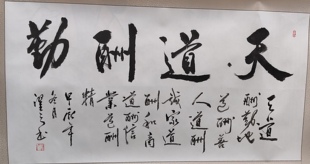 天道酬勤
天道
酬勤地
道酬善
人道酬
诚家道
酬和商
道酬信
業道酬
精
甲辰年
冬月